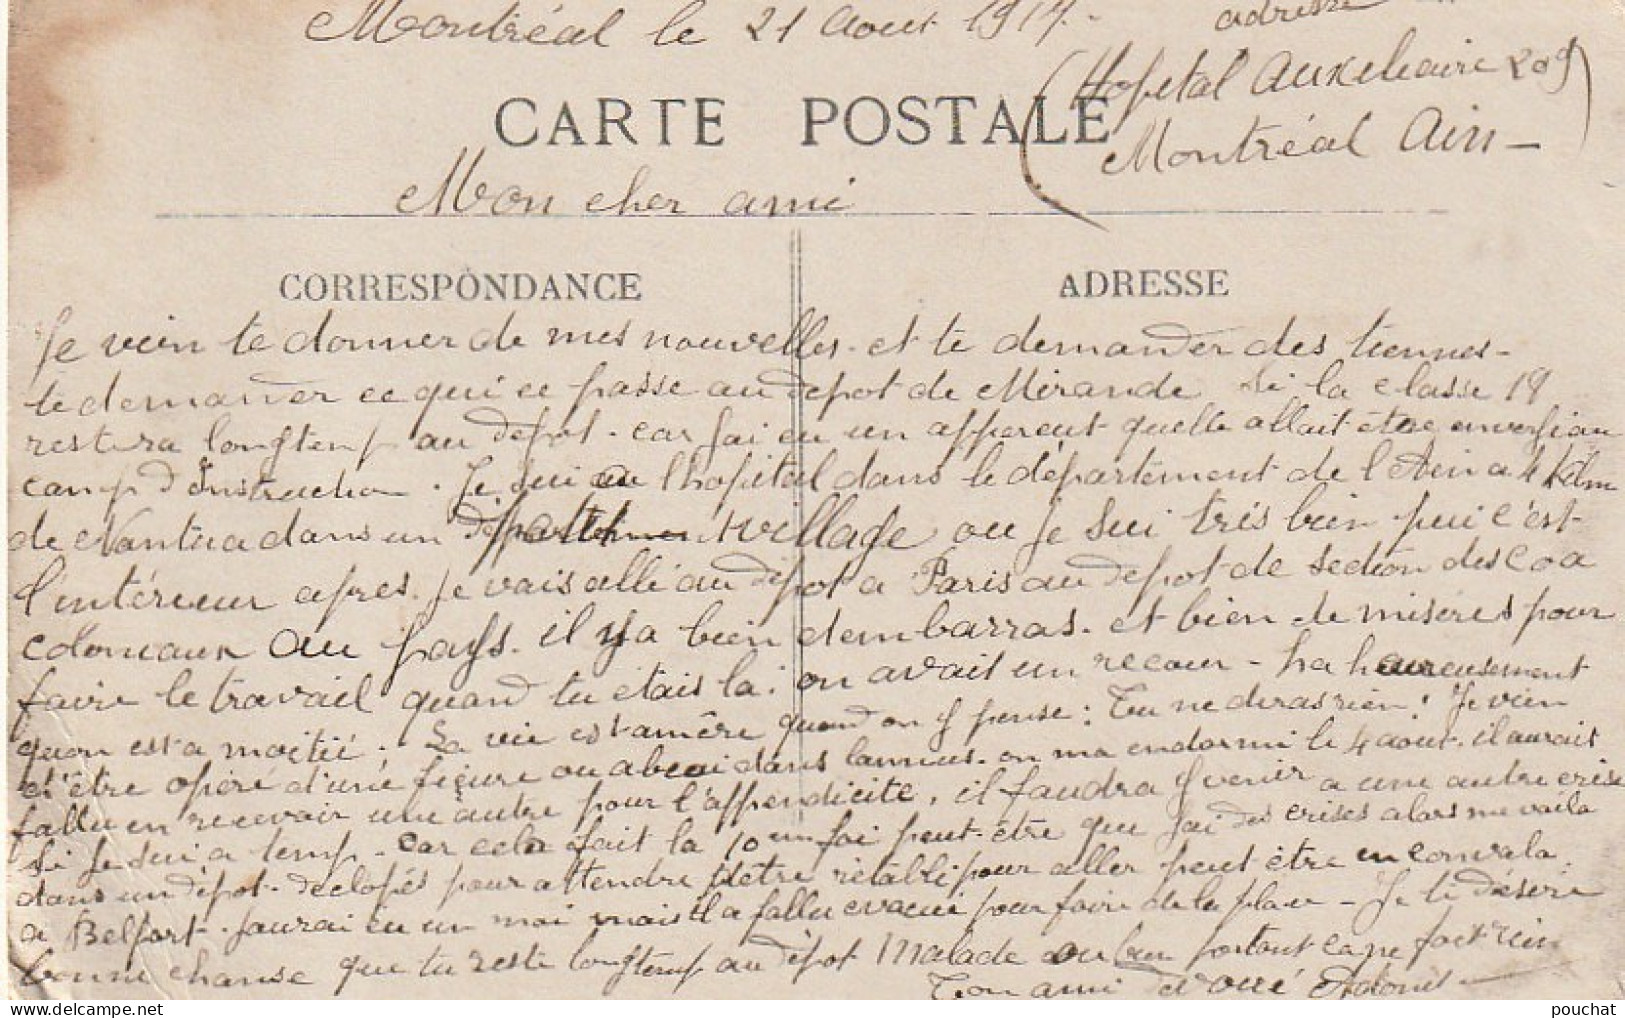 Montréal le 21 Aout 1917.
adresse
(Hopital Auxeliaire 209)
Montréal Ain -
CARTE POSTALE
Mon cher ami
CORRESPONDANCE
ADRESSE
Je vien te donner de mes nouvelles. et te demander des tiennes -
te demander ce qui ce passe au depot de Mirande Si la classe 19
restera longtemp au dépot. car jai eu un apperent quelle allait étre
camp d'Instruction. Je sui a l'hopital dans le département de l'Ain a 4 Kilm
de Nantua dans un village ou je sui trés bien pui c'est
l'intérieur apres. Je vais allé au dépot a Paris au depot de section des Coa
coloniaux au pays. il y a bien dembarras. et bien de miséres pour
faire le travail quand tu étais la. on avait un recour - ha heureusement
quon est a moitié. La vie est amère quand on y pense : Tu ne diras rien ! Je vien
d'être opéré d'une fiçure ou abcai dans lannus. on ma endormi le 4 aout. il aurait
fallu en recevoir une autre pour l'appendicite, il faudra y venir a une autre crise
Si je sui a temp. car cela fait la 10 fai peut-être que jai des crises alors me voila
dans un dépot declopés pour attendre d'être rétabli pour aller peut être en convala.
a Belfort. jaurai eu un moi mais il a fallu evacué pour faire de la place - Je te désire
bonne chanse que tu reste longtemp au dépot Malade ou bien portant ca ne fait rien
Ton ami dévoué Adonis
pouchat